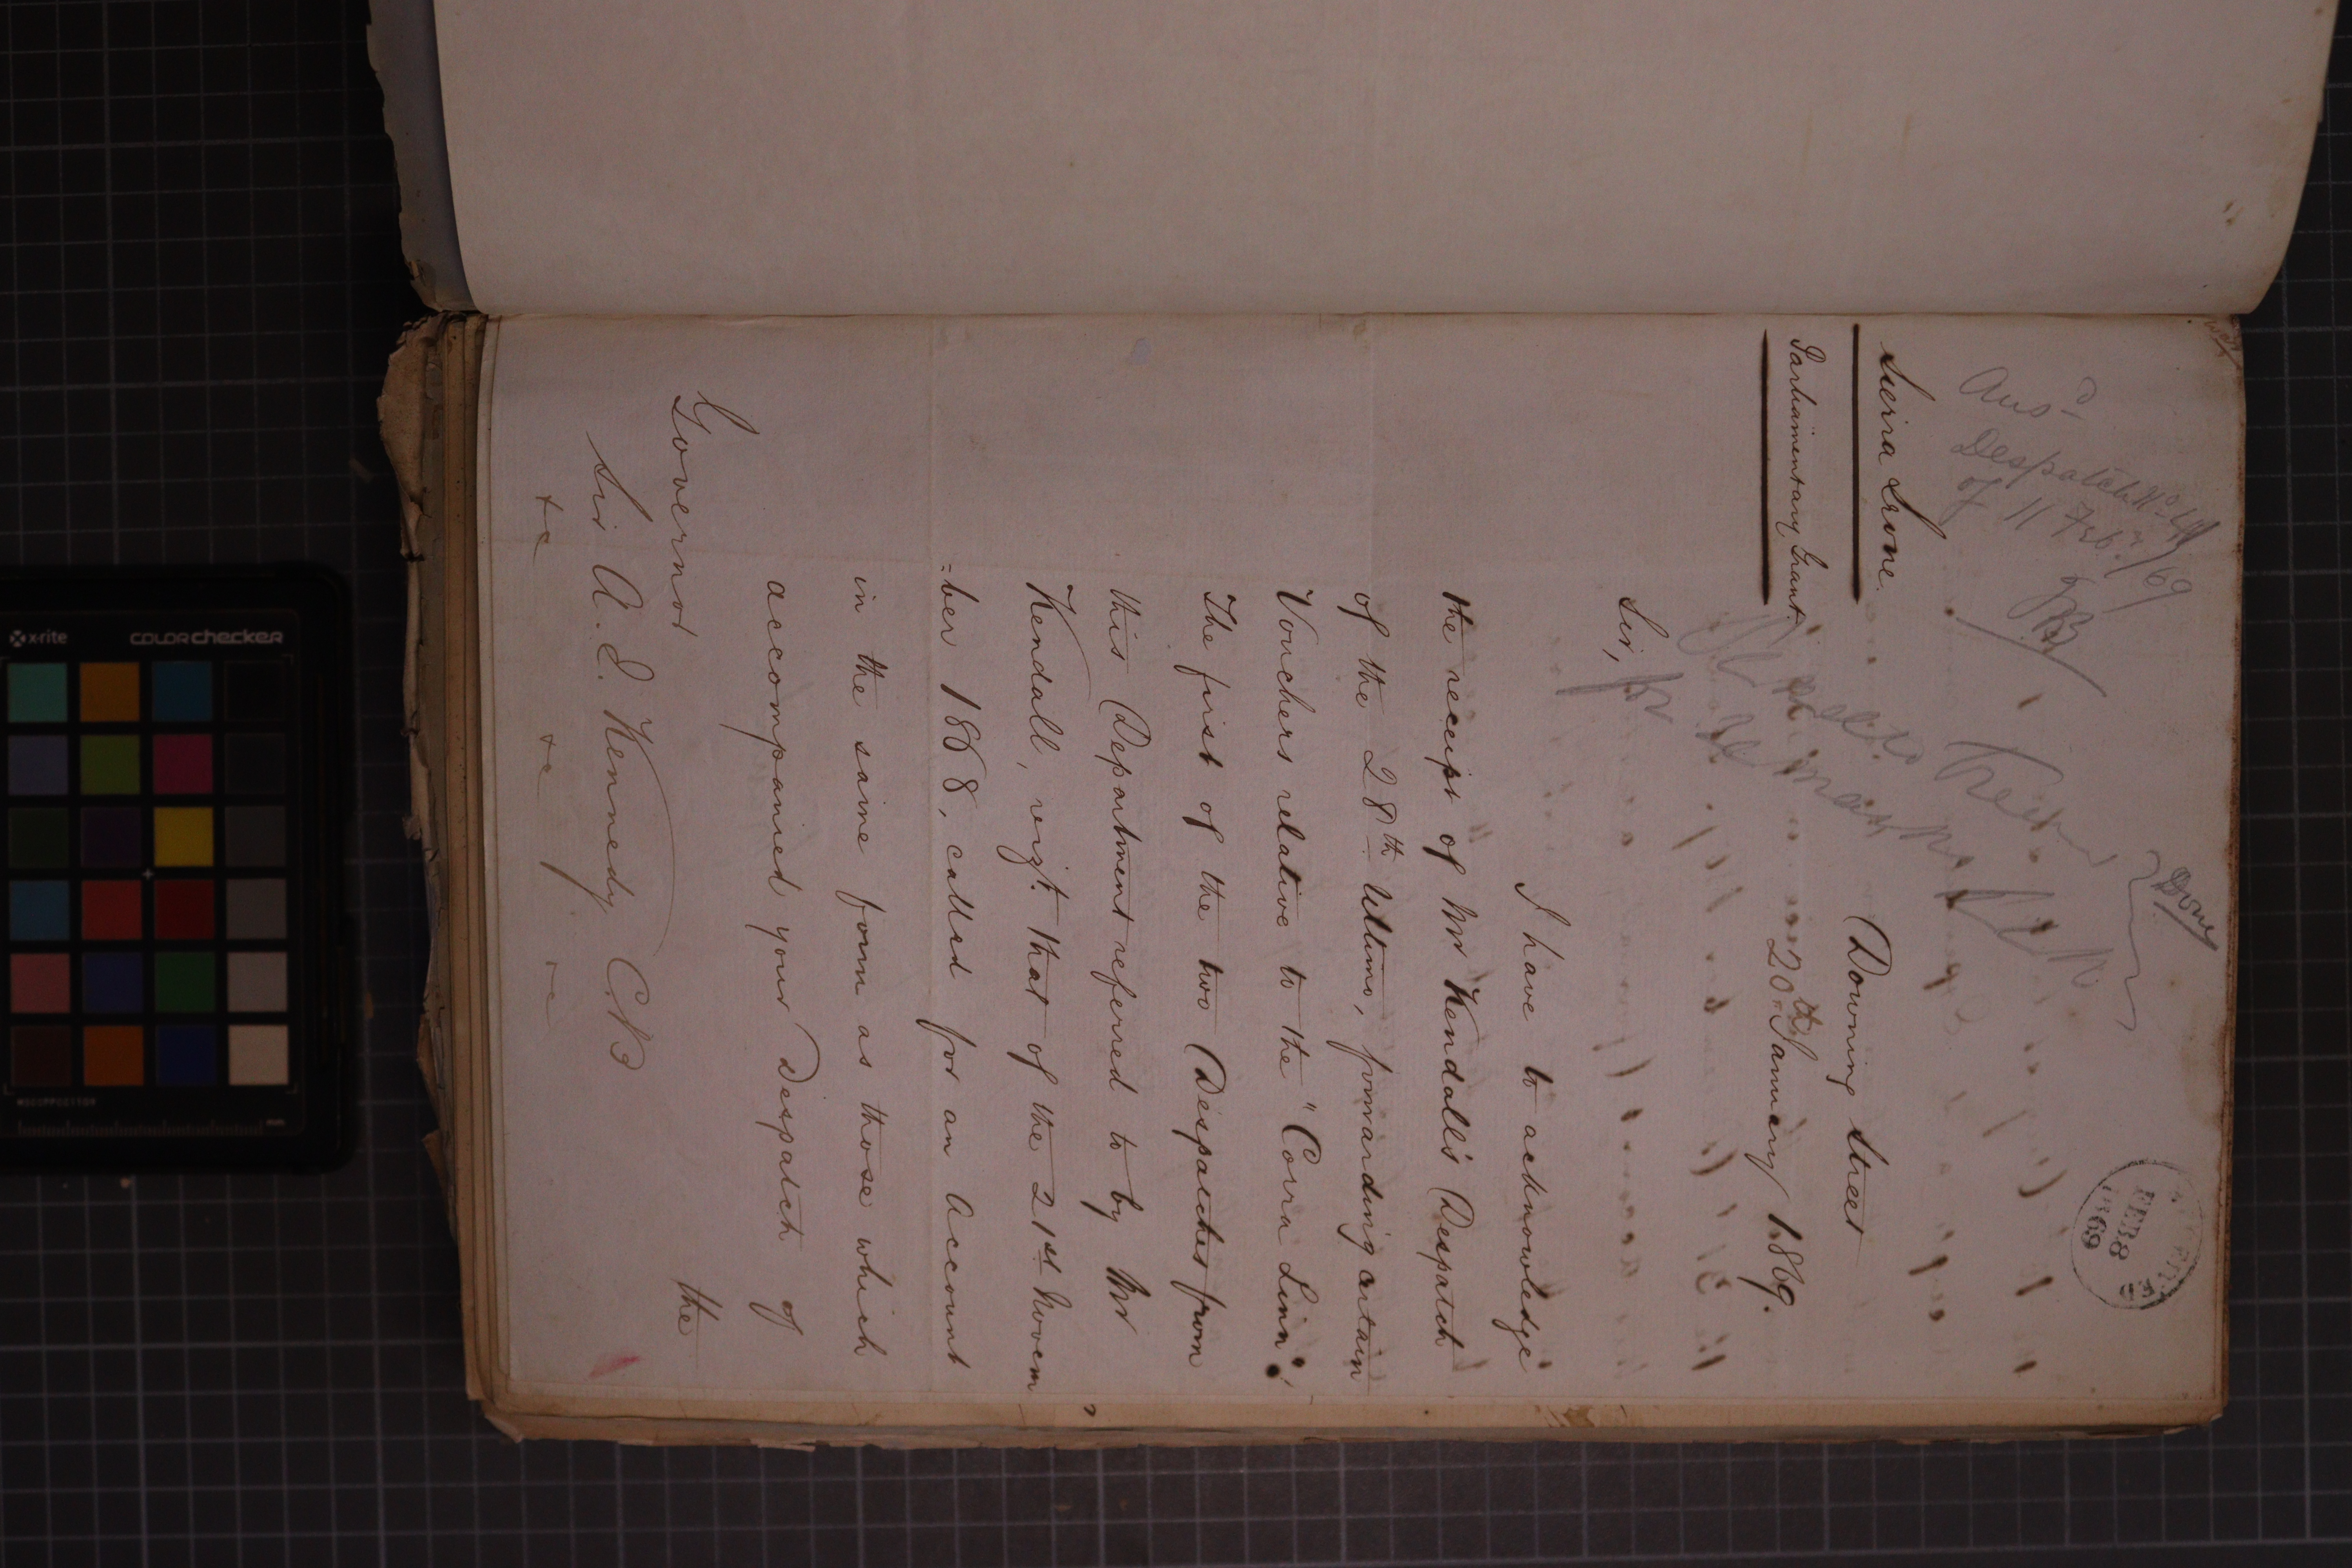 Ansd
Despatch No
of 11 Feby/69
Done
FEB 8
1869
Sierra Leone.
Parliamentary Grant.
Downing Street
20th January 1869.
Col Treasr
for remarks
Sir,
I have to acknowledge
the receipt of Mr Kendall's Despatch
of the 28th Ultimo, forwarding certain
Vouchers relative to the "Corra Linn".
The first of the two Despatches from
this Department referred to by Mr
Kendall, vizt. that of the 21st Novem
=ber 1868, called for an Account
in the same form as those which
accompanied your Despatch of
the
Governor
Sir A. E. Kennedy CB
&c &c &c
x-rite
COLORchecker
mm